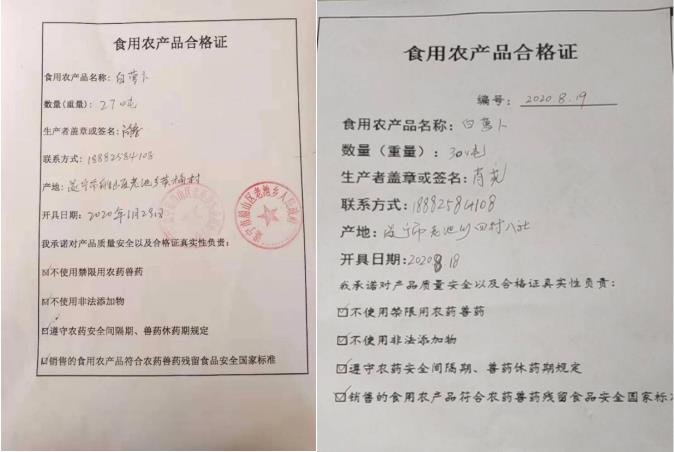 食用农产品合格证
食用农产品名称：白萝卜
数量(重量)：270吨
生产者盖章或签名：
联系方式：18882584108
产地：遂宁市船山区老池乡
开具日期：2020年1月29日
遂宁市船山区老池乡人民政府
我承诺对产品质量安全以及合格证真实性负责：
☑不使用禁限用农药兽药
☑不使用非法添加物
☑遵守农药安全间隔期、兽药休药期规定
☑销售的食用农产品符合农药兽药残留食品安全国家标准
食用农产品合格证
编号：2020.8.19
食用农产品名称：白萝卜
数量（重量）：30吨
生产者盖章或签名：肖
联系方式：18882584108
产地：遂宁市老池乡四村八社
开具日期：2020 8 18
我承诺对产品质量安全以及合格证真实性负责：
☑不使用禁限用农药兽药
☑不使用非法添加物
☑遵守农药安全间隔期、兽药休药期规定
☑销售的食用农产品符合农药兽药残留食品安全国家标